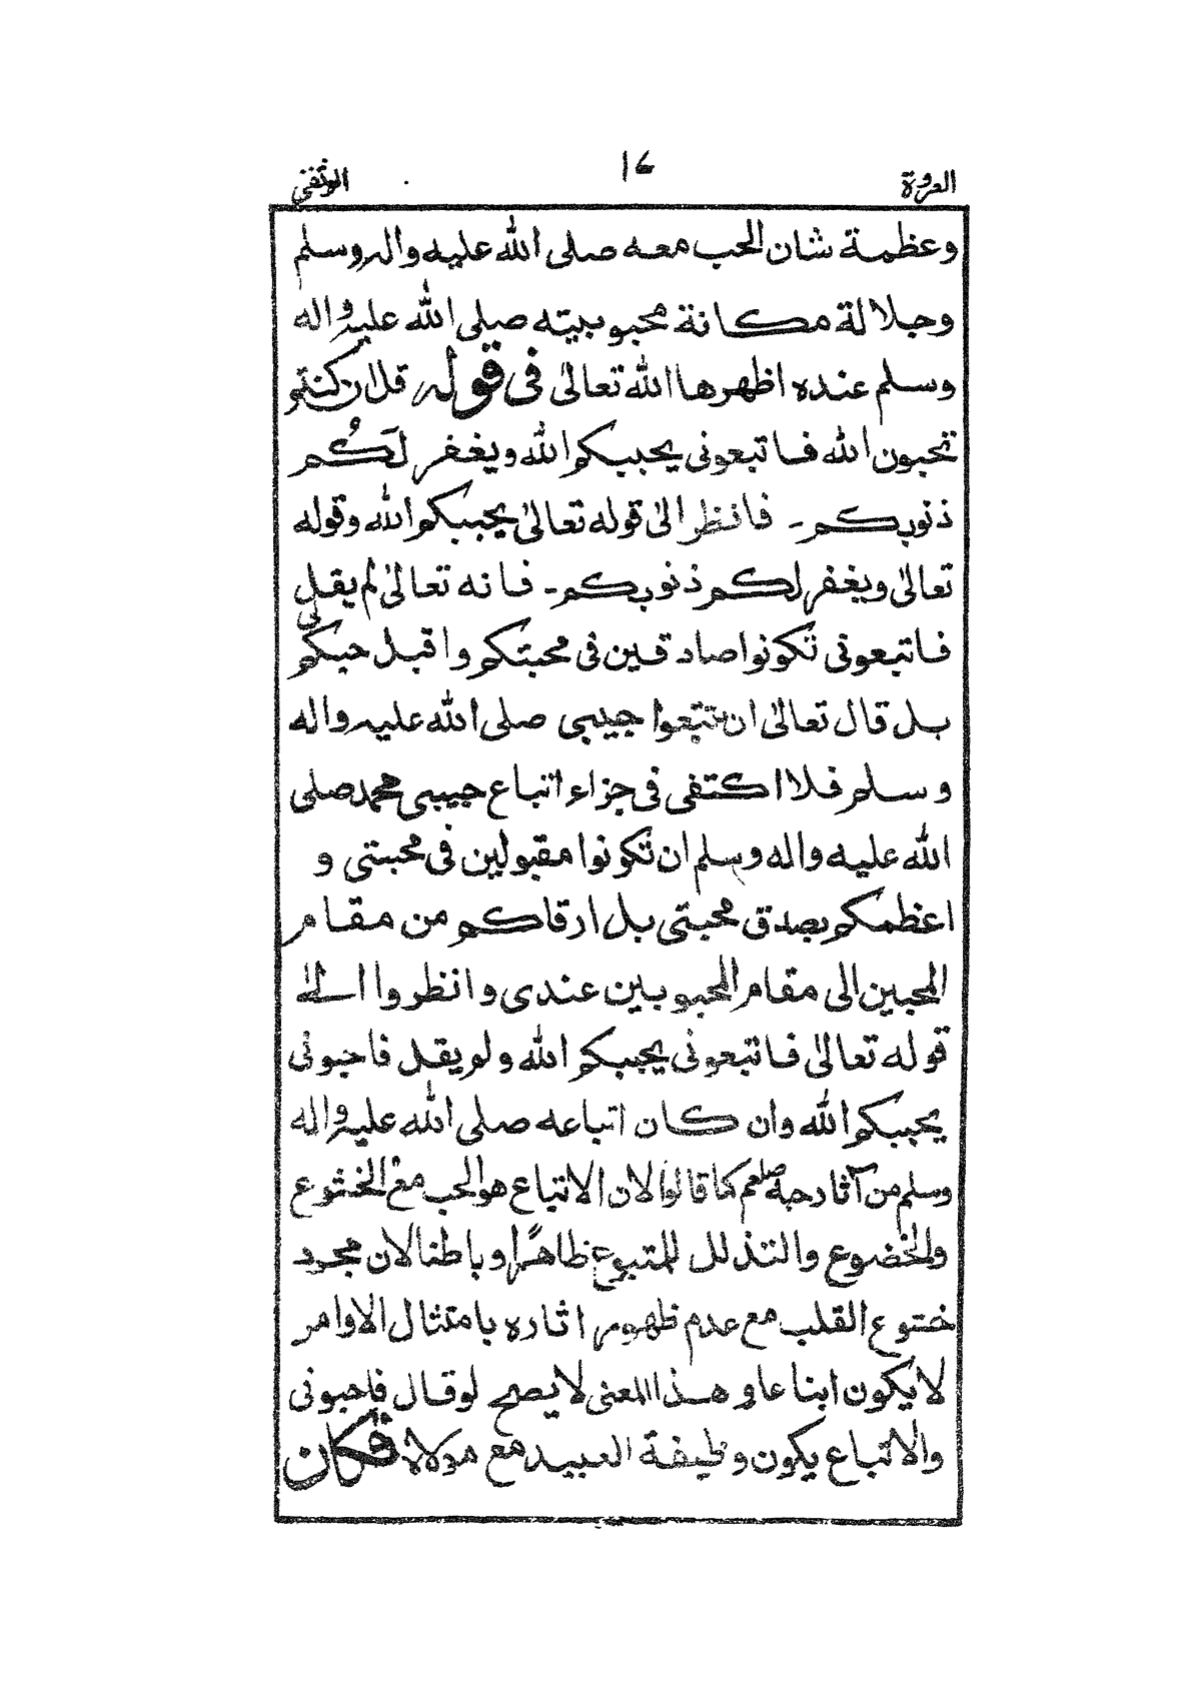 العروة ١٤ الوثقىٰ
وعظمة شان الحب معه صلى الله عليه واله وسلم
وجلالة مكانة محبوبيته صلى الله عليه واله
وسلم عنده اظهرها الله تعالىٰ فى قوله قل ان كنتم
تحبون الله فاتبعونى يحببكم الله ويغفر لَكُم
ذنوبكم ـ فانظر الىٰ قوله تعالىٰ يحببكم الله وقوله
تعالىٰ ويغفر لكم ذنوبكم ـ فانه تعالىٰ لم يقل
فاتبعونى تكونوا صادقين فى محبتكم واقبل حبكم لى
بل قال تعالىٰ ان تتبعوا حبيبى صلى الله عليه واله
وسلم فلا اكتفى فى جزاء اتباع حبيبى محمد صلى
الله عليه واله وسلم ان تكونوا مقبولين فى محبتى و
اعظمكم بصدق محبتى بل ارقاكم من مقام
المحبين الى مقام المحبوبين عندى وانظروا الىٰ
قوله تعالىٰ فاتبعونى يحببكم الله ولم يقل فاحبونى
يحببكم الله وان كان اتباعه صلى الله عليه واله
وسلم من آثار حبه صلعم كما قالوا لان الاتباع هو الحب مع الخشوع
والخضوع والتذلل للمتبوع ظاهرًا وباطنا لان مجرد
خشوع القلب مع عدم ظهور اثاره بامتثال الاوامر
لا يكون اتباعا و هذا المعنى لا يصح لو قال فاحبونى
والاتباع يكون وظيفة العبيد مع مولاه فكان